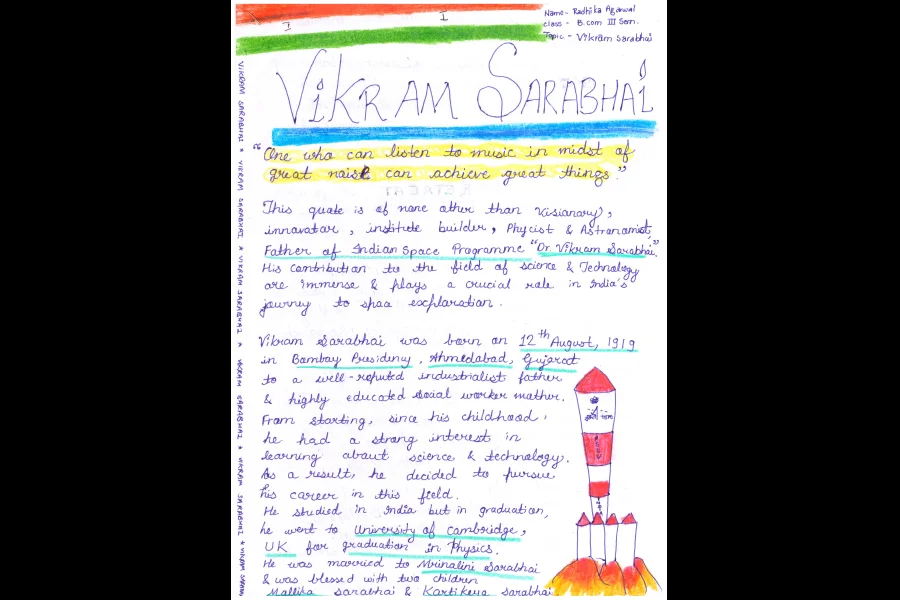 Name - Radhika Agarwal
class - B.com III Sem.
Topic - Vikram Sarabhai
VIKRAM SARABHAI
"One who can listen to music in midst of
great noise can achieve great things."
This quote is of none other than Visionary,
innovator, institute builder, Phycist & Astronomist,
Father of Indian Space Programme "Dr. Vikram Sarabhai."
His contribution to the field of science & Technology
are immense & plays a crucial role in India's
journey to spaa exploration.
Vikram Sarabhai was born on 12th August, 1919
in Bombay Presideny, Ahmedabad, Gujarat
to a well-reputed industrialist father
& highly educated social worker mother.
From starting, since his childhood,
he had a strong interest in
learning about science & technology.
As a result, he decided to pursue
his career in this field.
He studied in India but in graduation,
he went to University of Cambridge,
UK for graduation in Physics.
He was married to Mrinalini Sarabhai
& was blessed with two children
Mallika Sarabhai & Kartikeya Sarabhai
VIKRAM SARABHAI * VIKRAM SARABHAI * VIKRAM SARABHAI * VIKRAM SARABHAI * VIKRAM SARABHAI * VIKRAM SARABHAI